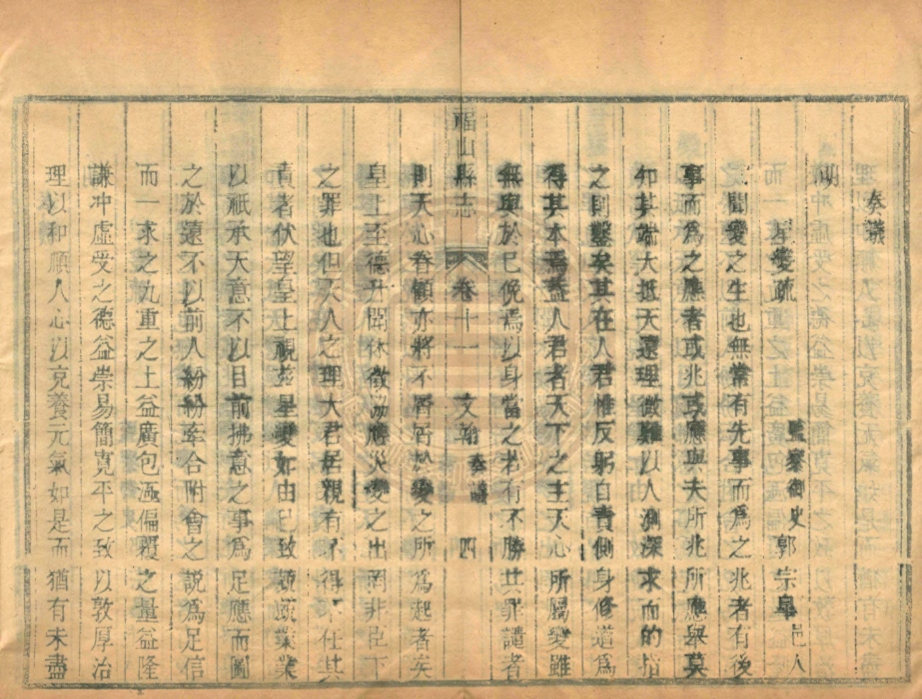 奏議
明
星變疏 監察御史郭宗皐邑人
聞變之生也無常有先事而為之兆者有後
事而為之應者或兆或應與夫所兆所應與莫
知其端大抵天遠理微難以人測深求而的指
之則鑿矣其在人君惟反躬自責側身修道為
得其本焉蓋人君者天下之主天心所屬變雖
無與於已俛焉以身當之若有不勝其罪譴者
福山縣志 卷十一 文翰 奏議 四
則天心眷顧亦將不屑屑於變之所為起者矣
皇上至德升聞休徵 應災變之出 非臣下
之罪也但天人之理大君居親有不得不任其
責者伏望皇上視茲星變如由已致 業業
以祇承天意不以目前拂意之事為足應而圖
之於遠不以前人紛紛牽合附會之說為足信
而一求之九重之上益廣包涵偏覆之量益隆
謙冲虛受之德益崇易簡寬平之致以敦厚治
理以和順人心以克養元氣如是而猶有未盡